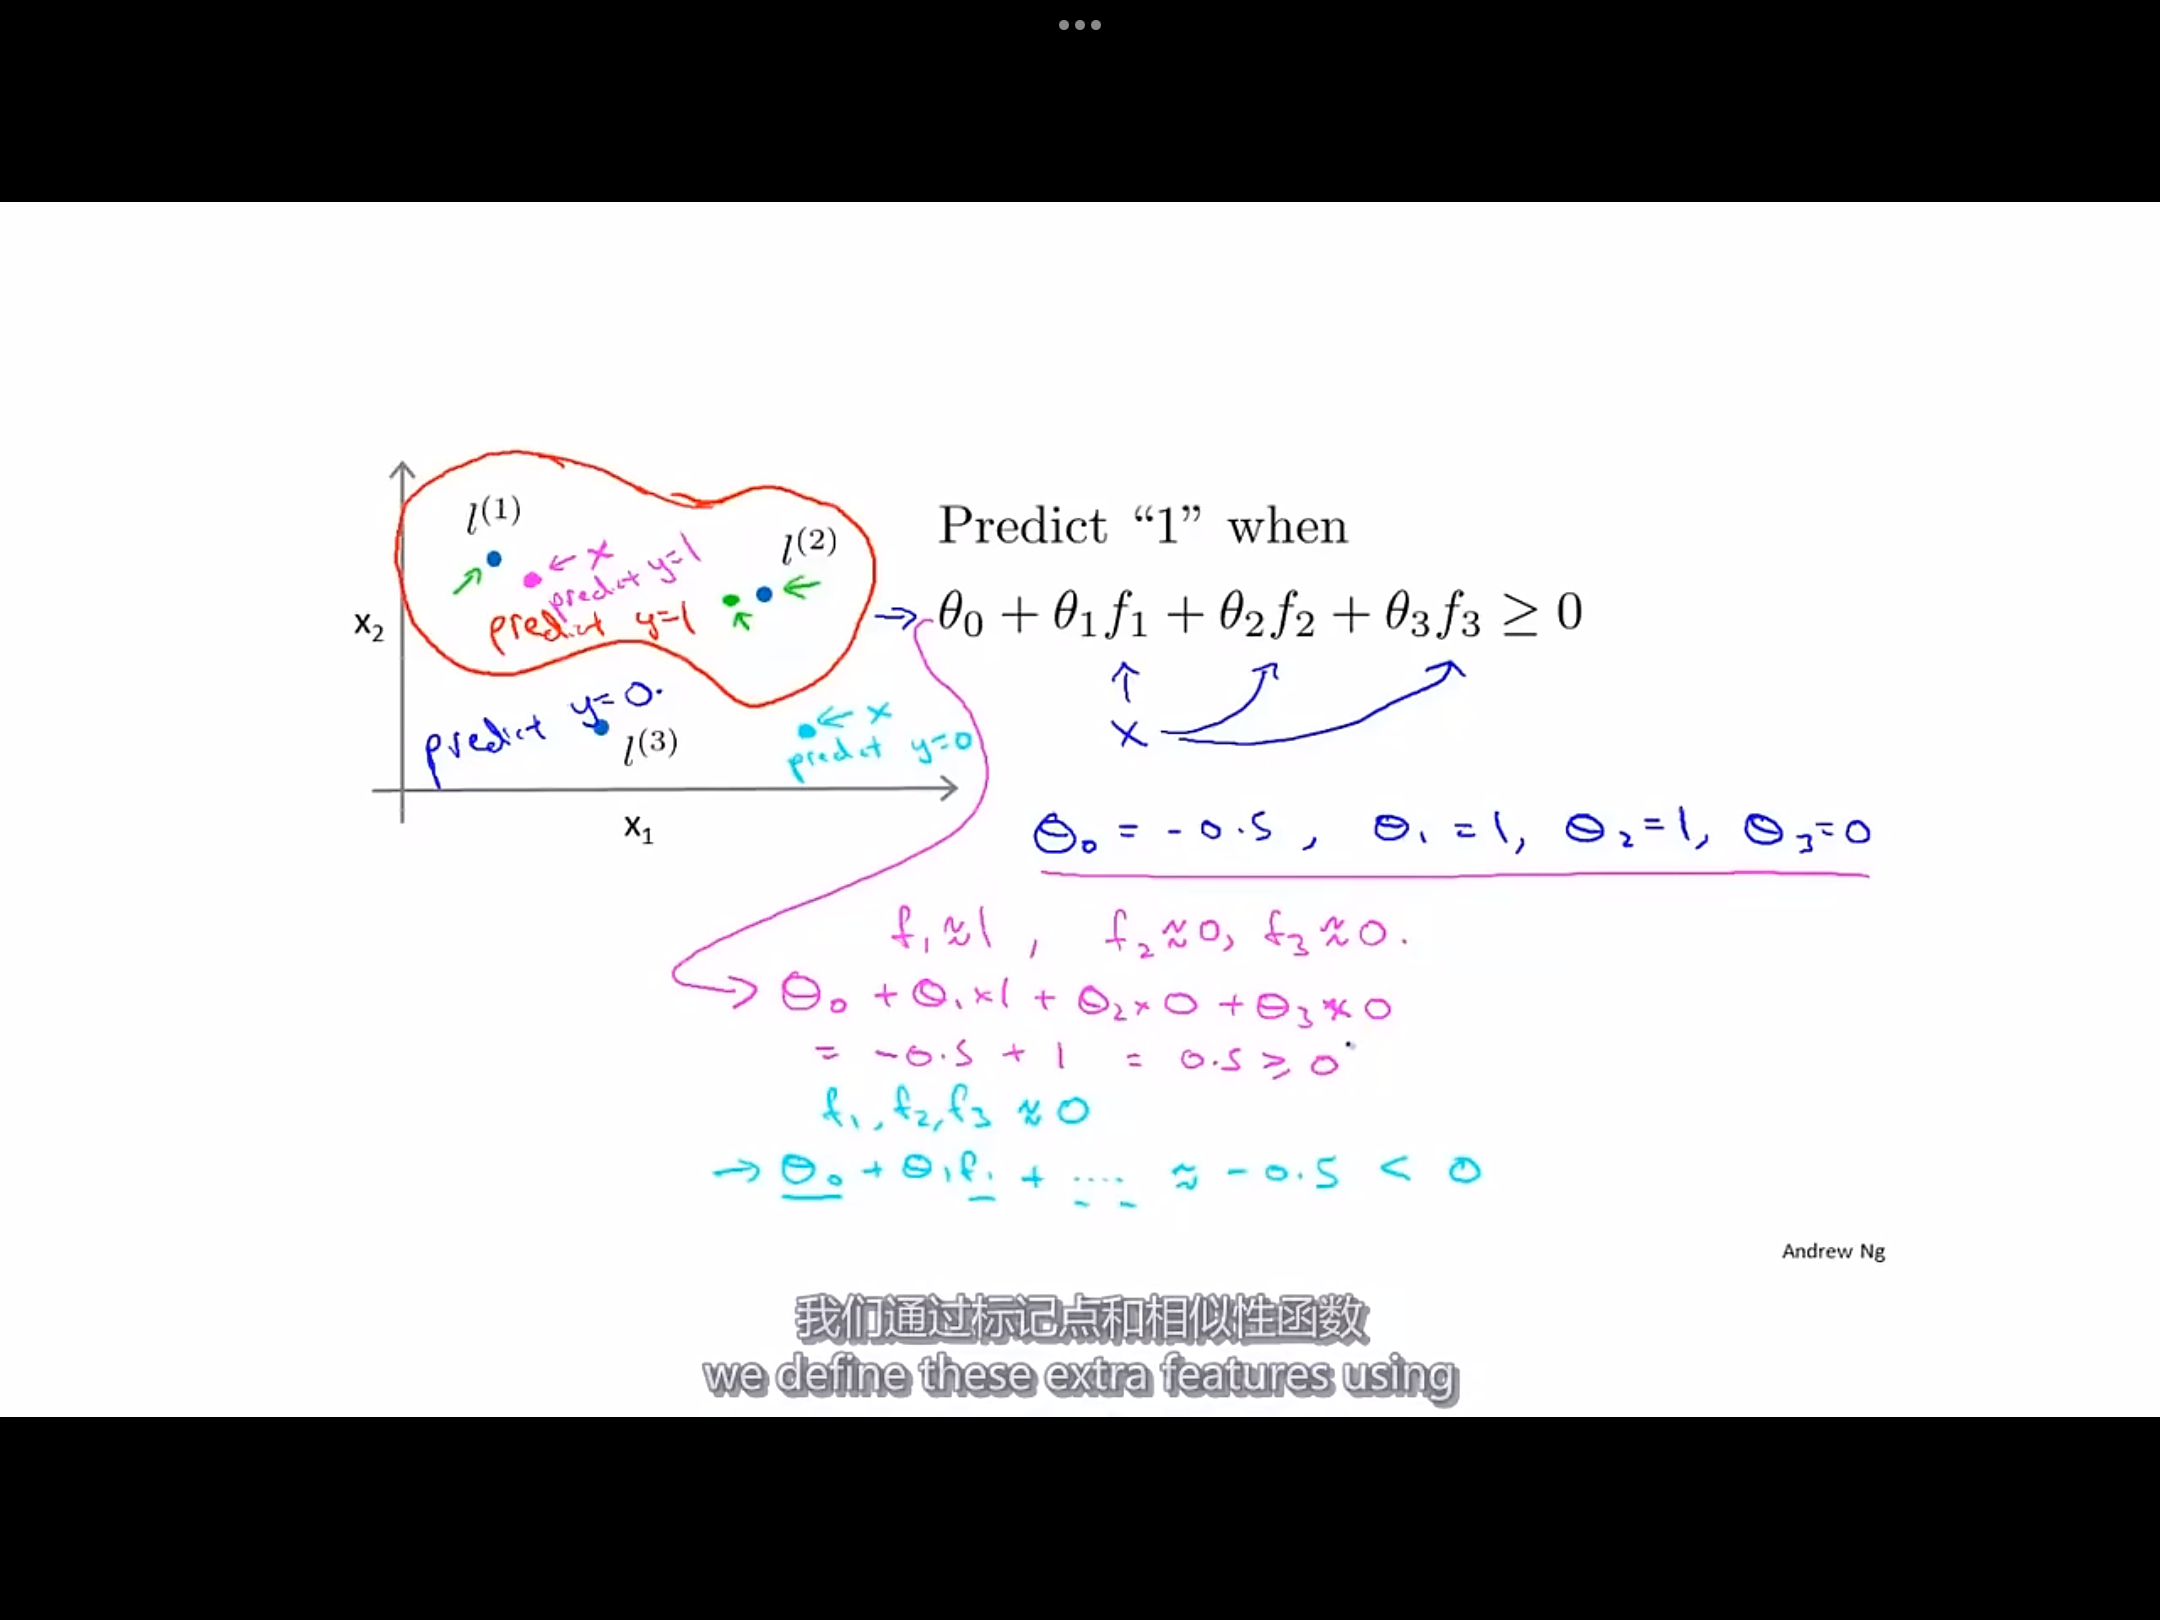 l^(1)
← x
predict y=1
l^(2)
predict y=1
x₂
predict y=0.
l^(3)
← x
predict y=0
x₁
Predict “1” when
→ θ₀ + θ₁f₁ + θ₂f₂ + θ₃f₃ ≥ 0
x
θ₀ = -0.5, θ₁ = 1, θ₂ = 1, θ₃ = 0
f₁ ≈ 1, f₂ ≈ 0, f₃ ≈ 0.
→ θ₀ + θ₁ x 1 + θ₂ x 0 + θ₃ x 0
= -0.5 + 1 = 0.5 ≥ 0
f₁, f₂, f₃ ≈ 0
→ θ₀ + θ₁f₁ + .... ≈ -0.5 < 0
Andrew Ng
我们通过标记点和相似性函数
we define these extra features using